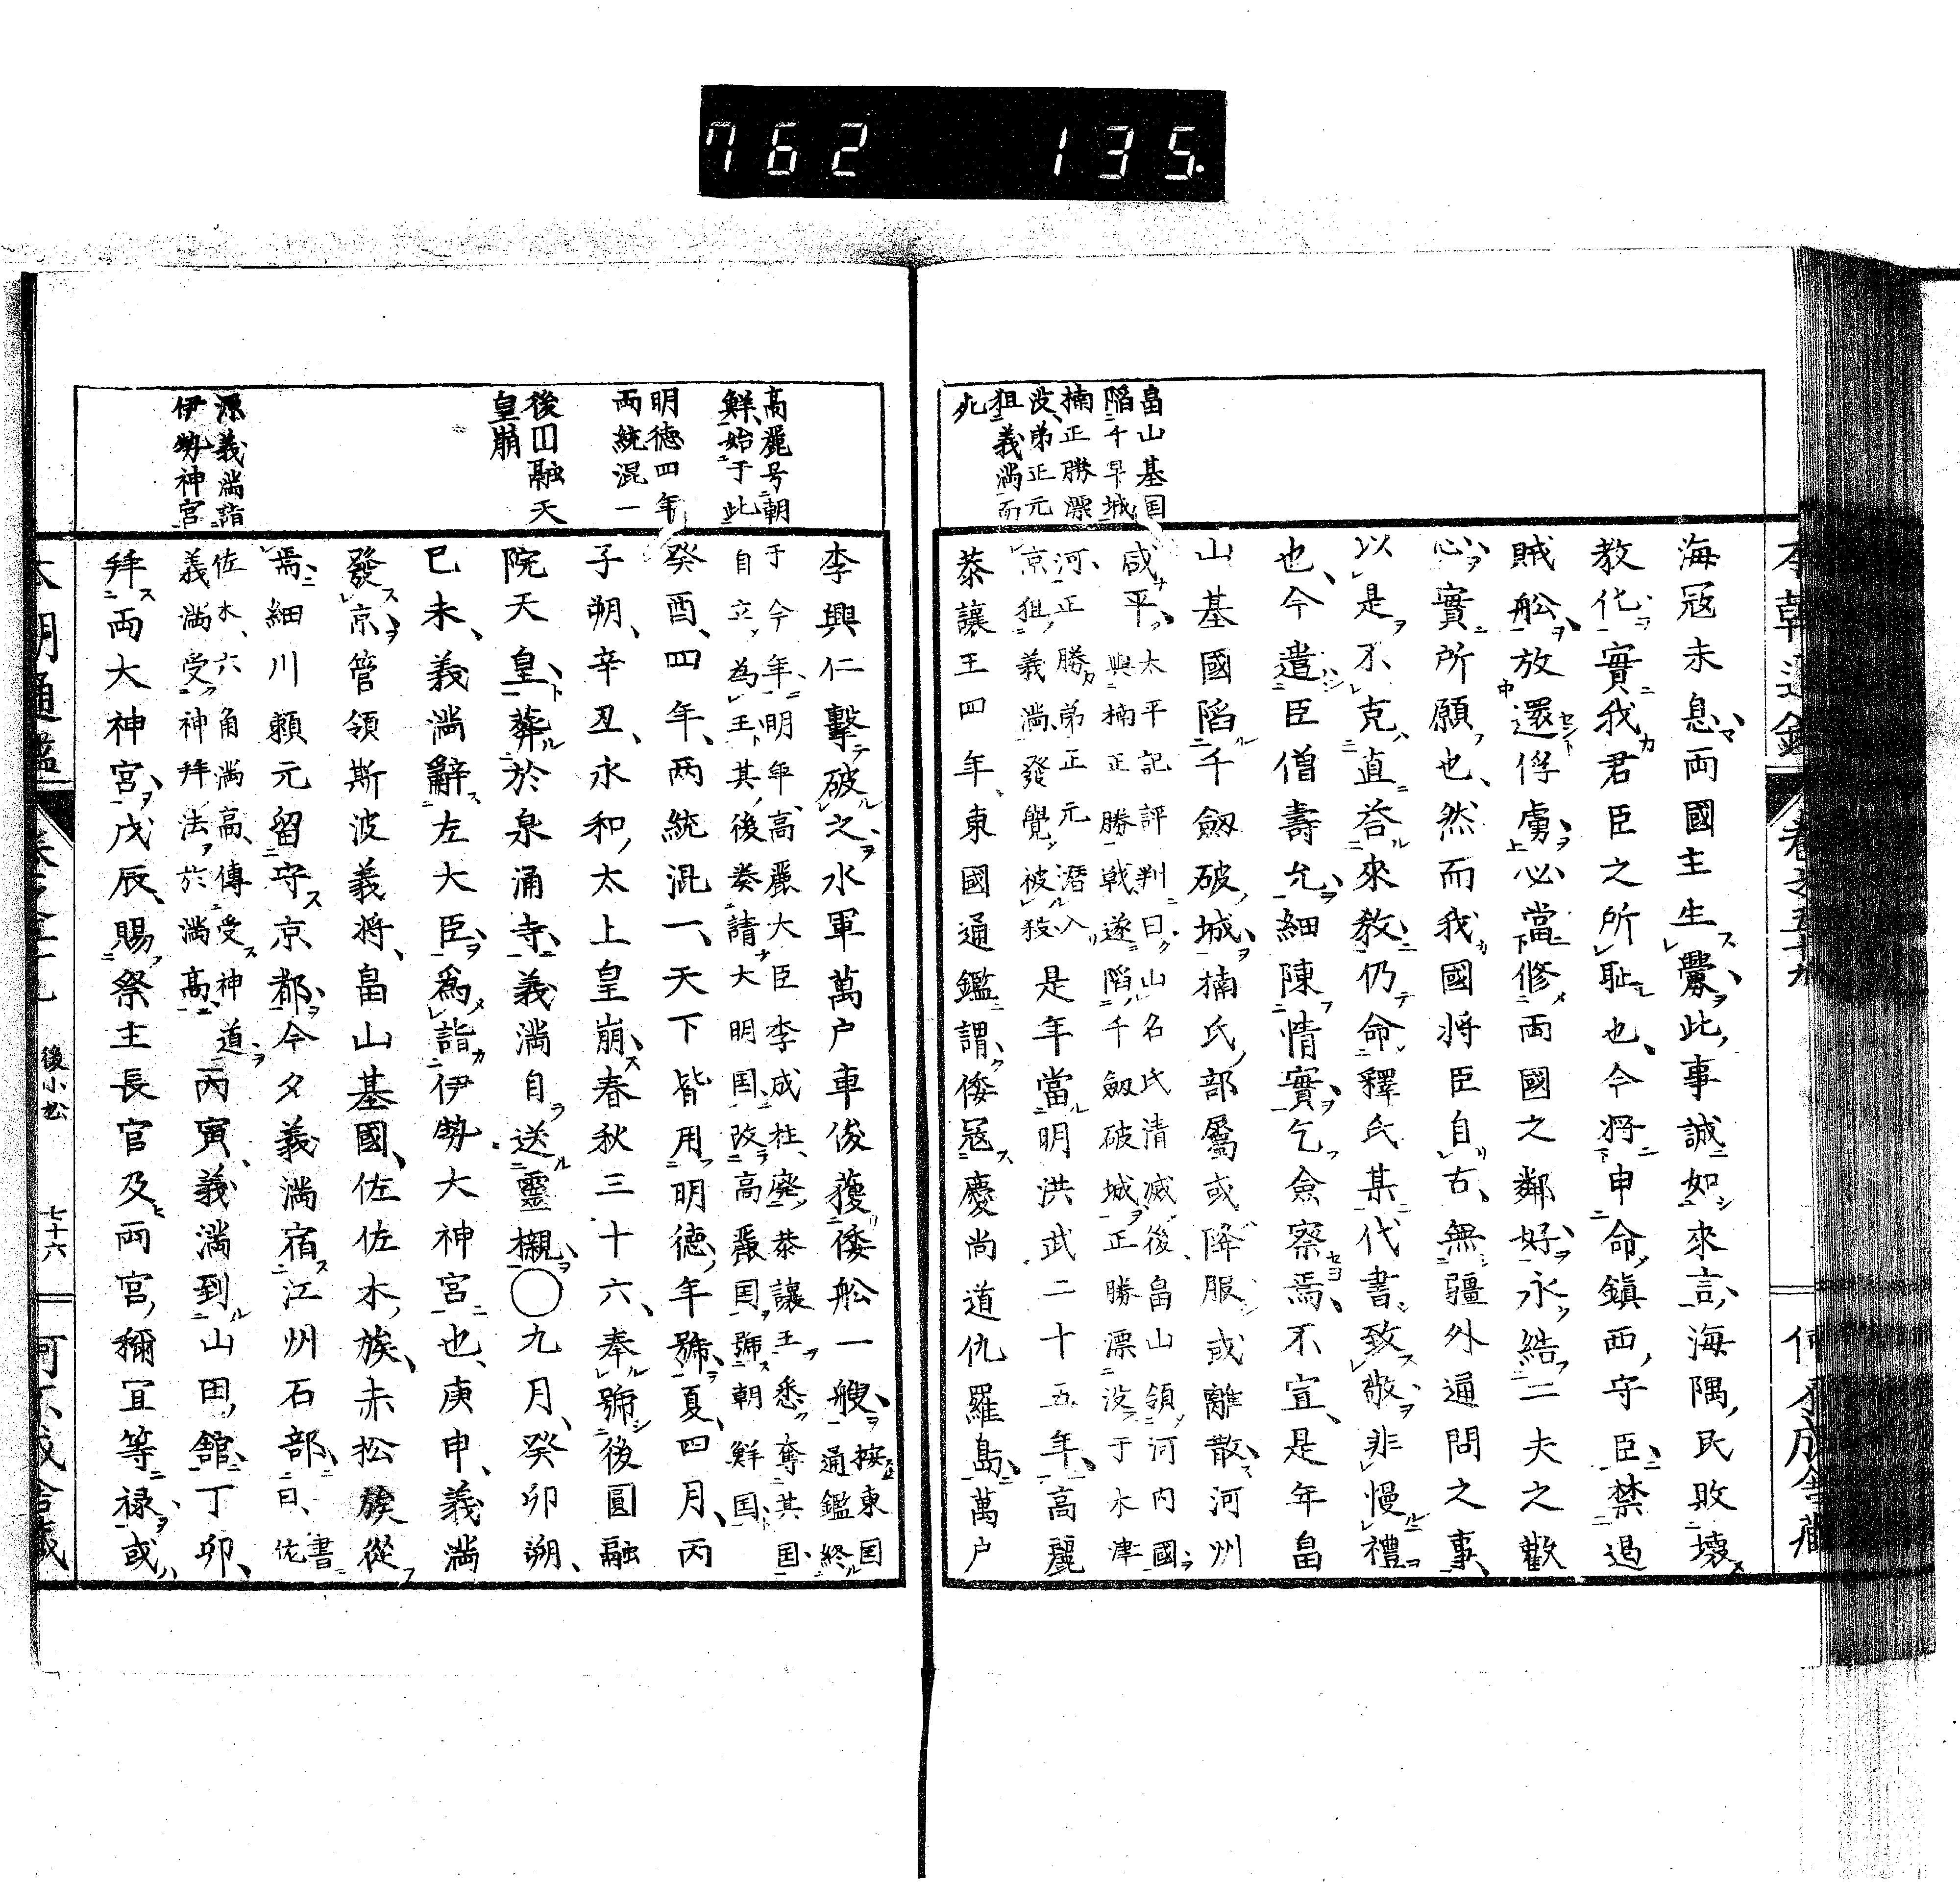 762 135.
畠山基国
陷千早城
楠正勝漂
没弟正元
狙義満而
死
海冦未息両國主生釁此事誠如來言海隅民敗壊
教化實我君臣之所耻也今将申命鎭西守臣禁遏
賊舩放還俘虜必當修両國之鄰好永結二夫之歡
心實所願也然而我國将臣自古無疆外通問之事
以是不克直荅來教仍命釋氏某代書致敬非慢禮
也今遣臣僧壽允細陳情實乞僉察焉不宣是年畠
山基國陷千劔破城楠氏部屬或降服或離散河州
咸平太平記評判曰山名氏清滅後畠山領河内國
與楠正勝戰遂陷千劔破城正勝漂没于水津
河正勝弟正元潜入
京狙義満發覺被殺是年當明洪武二十五年高麗
恭讓王四年東國通鑑謂倭冦慶尚道仇羅島萬户
高麗号朝
鮮始于此
明徳四年
両統混一
後円融天
皇崩
源義満詣
伊勢神宮
李興仁擊破之水軍萬户車俊獲倭舩一艘按東国
通鑑終
于今年明年高麗大臣李成桂廢恭讓王悉奪其国
自立為王其後奏請大明国改高麗国號朝鮮国
癸酉四年両統混一天下皆用明徳年號夏四月丙
子朔辛丑永和太上皇崩春秋三十六奉號後圓融
院天皇葬於泉涌寺義満自送靈櫬〇九月癸卯朔
巳未義満辭左大臣爲詣伊勢大神宮也庚申義満
發京管領斯波義将畠山基國佐佐木族赤松族從
焉細川頼元留守京都今夕義満宿江州石部曰書
佐
佐木六角満高傳受神道
義満受神拜法於満高丙寅義満到山田舘丁卯
拜両大神宮戊辰賜祭主長官及両宮禰冝等禄或
本朝通鑑
後小松
七十六